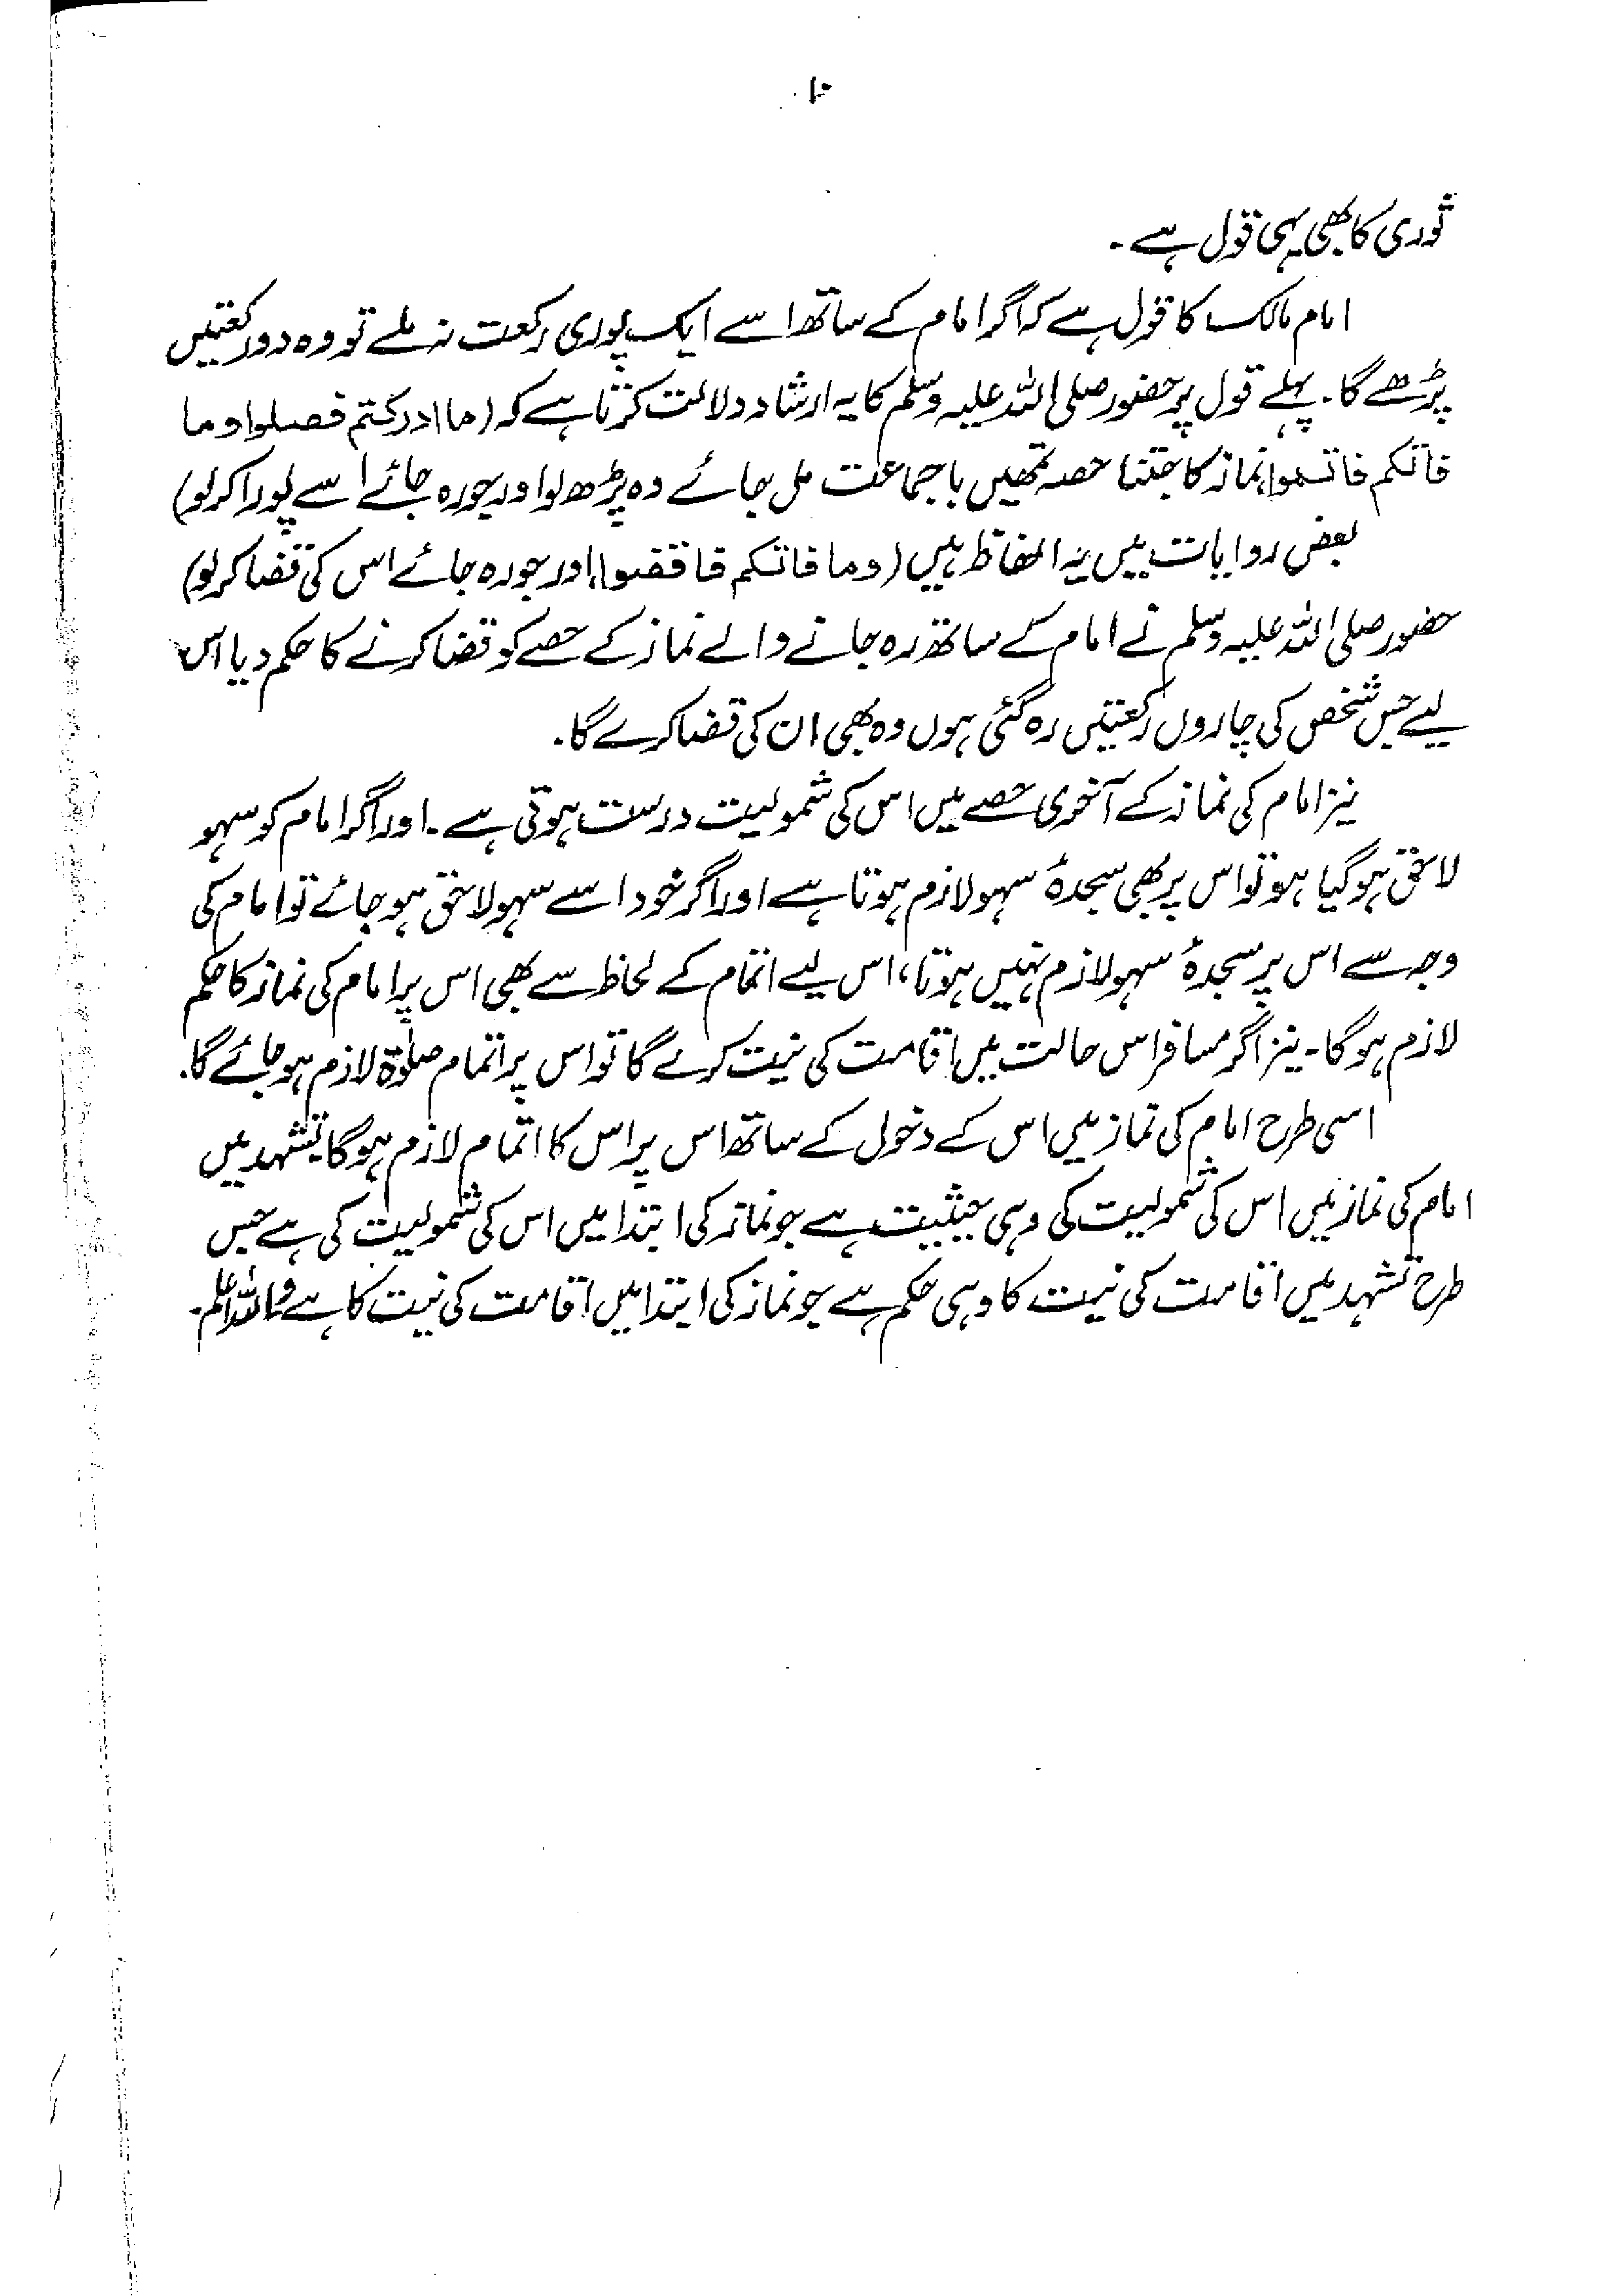 ۱۰
ثوری کا بھی یہی قول ہے۔
امام مالک کا قول ہے کہ اگر امام کے ساتھ اسے ایک پوری رکعت نہ ملے تو وہ دو رکعتیں
پڑھے گا۔ پہلے قول پر حضور صلی اللہ علیہ وسلم کا یہ ارشاد دلالت کرتا ہے کہ (ما ادرکتم فصلوا وما
فاتکم فاتموا، نماز کا جتنا حصہ تمھیں باجماعت مل جائے وہ پڑھ لو اور جو رہ جائے اسے پورا کر لو)
بعض روایات میں یہ الفاظ ہیں (وما فاتکم فاقضوا، اور جو رہ جائے اس کی قضا کر لو)
حضور صلی اللہ علیہ وسلم نے امام کے ساتھ رہ جانے والے نماز کے حصے کو قضا کرنے کا حکم دیا اس
لیے جس شخص کی چاروں رکعتیں رہ گئی ہوں وہ بھی ان کی قضا کرے گا۔
نیز امام کی نماز کے آخری حصے میں اس کی شمولیت درست ہوتی ہے۔ اور اگر امام کو سہو
لاحق ہو گیا ہو تو اس پر بھی سجدۂ سہو لازم ہوتا ہے اور اگر خود اسے سہو لاحق ہو جائے تو امام کی
وجہ سے اس پر سجدۂ سہو لازم نہیں ہوتا، اس لیے اتمام کے لحاظ سے بھی اس پر امام کی نماز کا حکم
لازم ہو گا۔ نیز اگر مسافر اس حالت میں اقامت کی نیت کرے گا تو اس پر اتمام صلوٰۃ لازم ہو جائے گا۔
اسی طرح امام کی نماز میں اس کے دخول کے ساتھ اس پر اس کا اتمام لازم ہو گا۔ تشہد میں
امام کی نماز میں اس کی شمولیت کی وہی حیثیت ہے جو نماز کی ابتدا میں اس کی شمولیت کی ہے جس
طرح تشہد میں اقامت کی نیت کا وہی حکم ہے جو نماز کی ابتدا میں اقامت کی نیت کا ہے واللہ اعلم۔